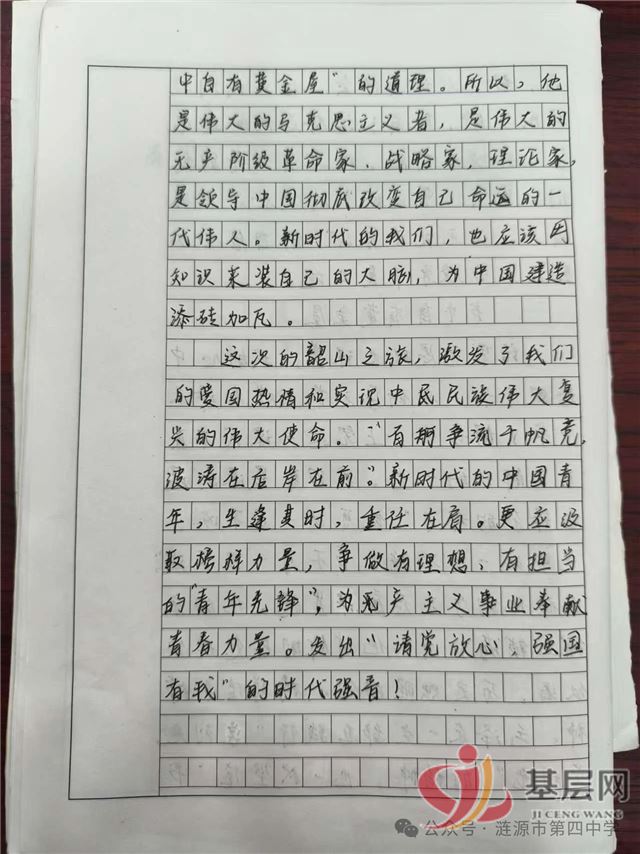 中自有黄金屋”的道理。所以,他
是伟大的马克思主义者,是伟大的
无产阶级革命家、战略家,理论家,
是领导中国彻底改变自己命运的一
代伟人。新时代的我们,也应该用
知识来装自己的大脑,为中国建造
添砖加瓦。
这次的韶山之旅,激发了我们
的爱国热情和实现中民民族伟大复
兴的伟大使命。“百舸争流千帆竞,
波涛在后岸在前”。新时代的中国青
年,生逢其时,重任在肩。更应汲
取榜样力量,争做有理想、有担当
的“青年先锋”,为无产主义事业奉献
青春力量。发出“请党放心,强国
有我”的时代强音!
基层网
JI CENG WANG
公众号·涟源市第四中学